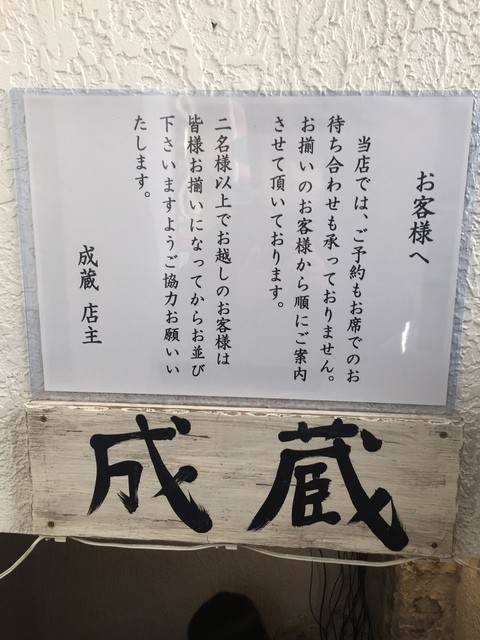 お客様へ
当店では、ご予約もお席でのお
待ち合わせも承っておりません。
お揃いのお客様から順にご案内
させて頂いております。
二名様以上でお越しのお客様は
皆様お揃いになってからお並び
下さいますようご協力お願いい
たします。
成蔵 店主
成蔵